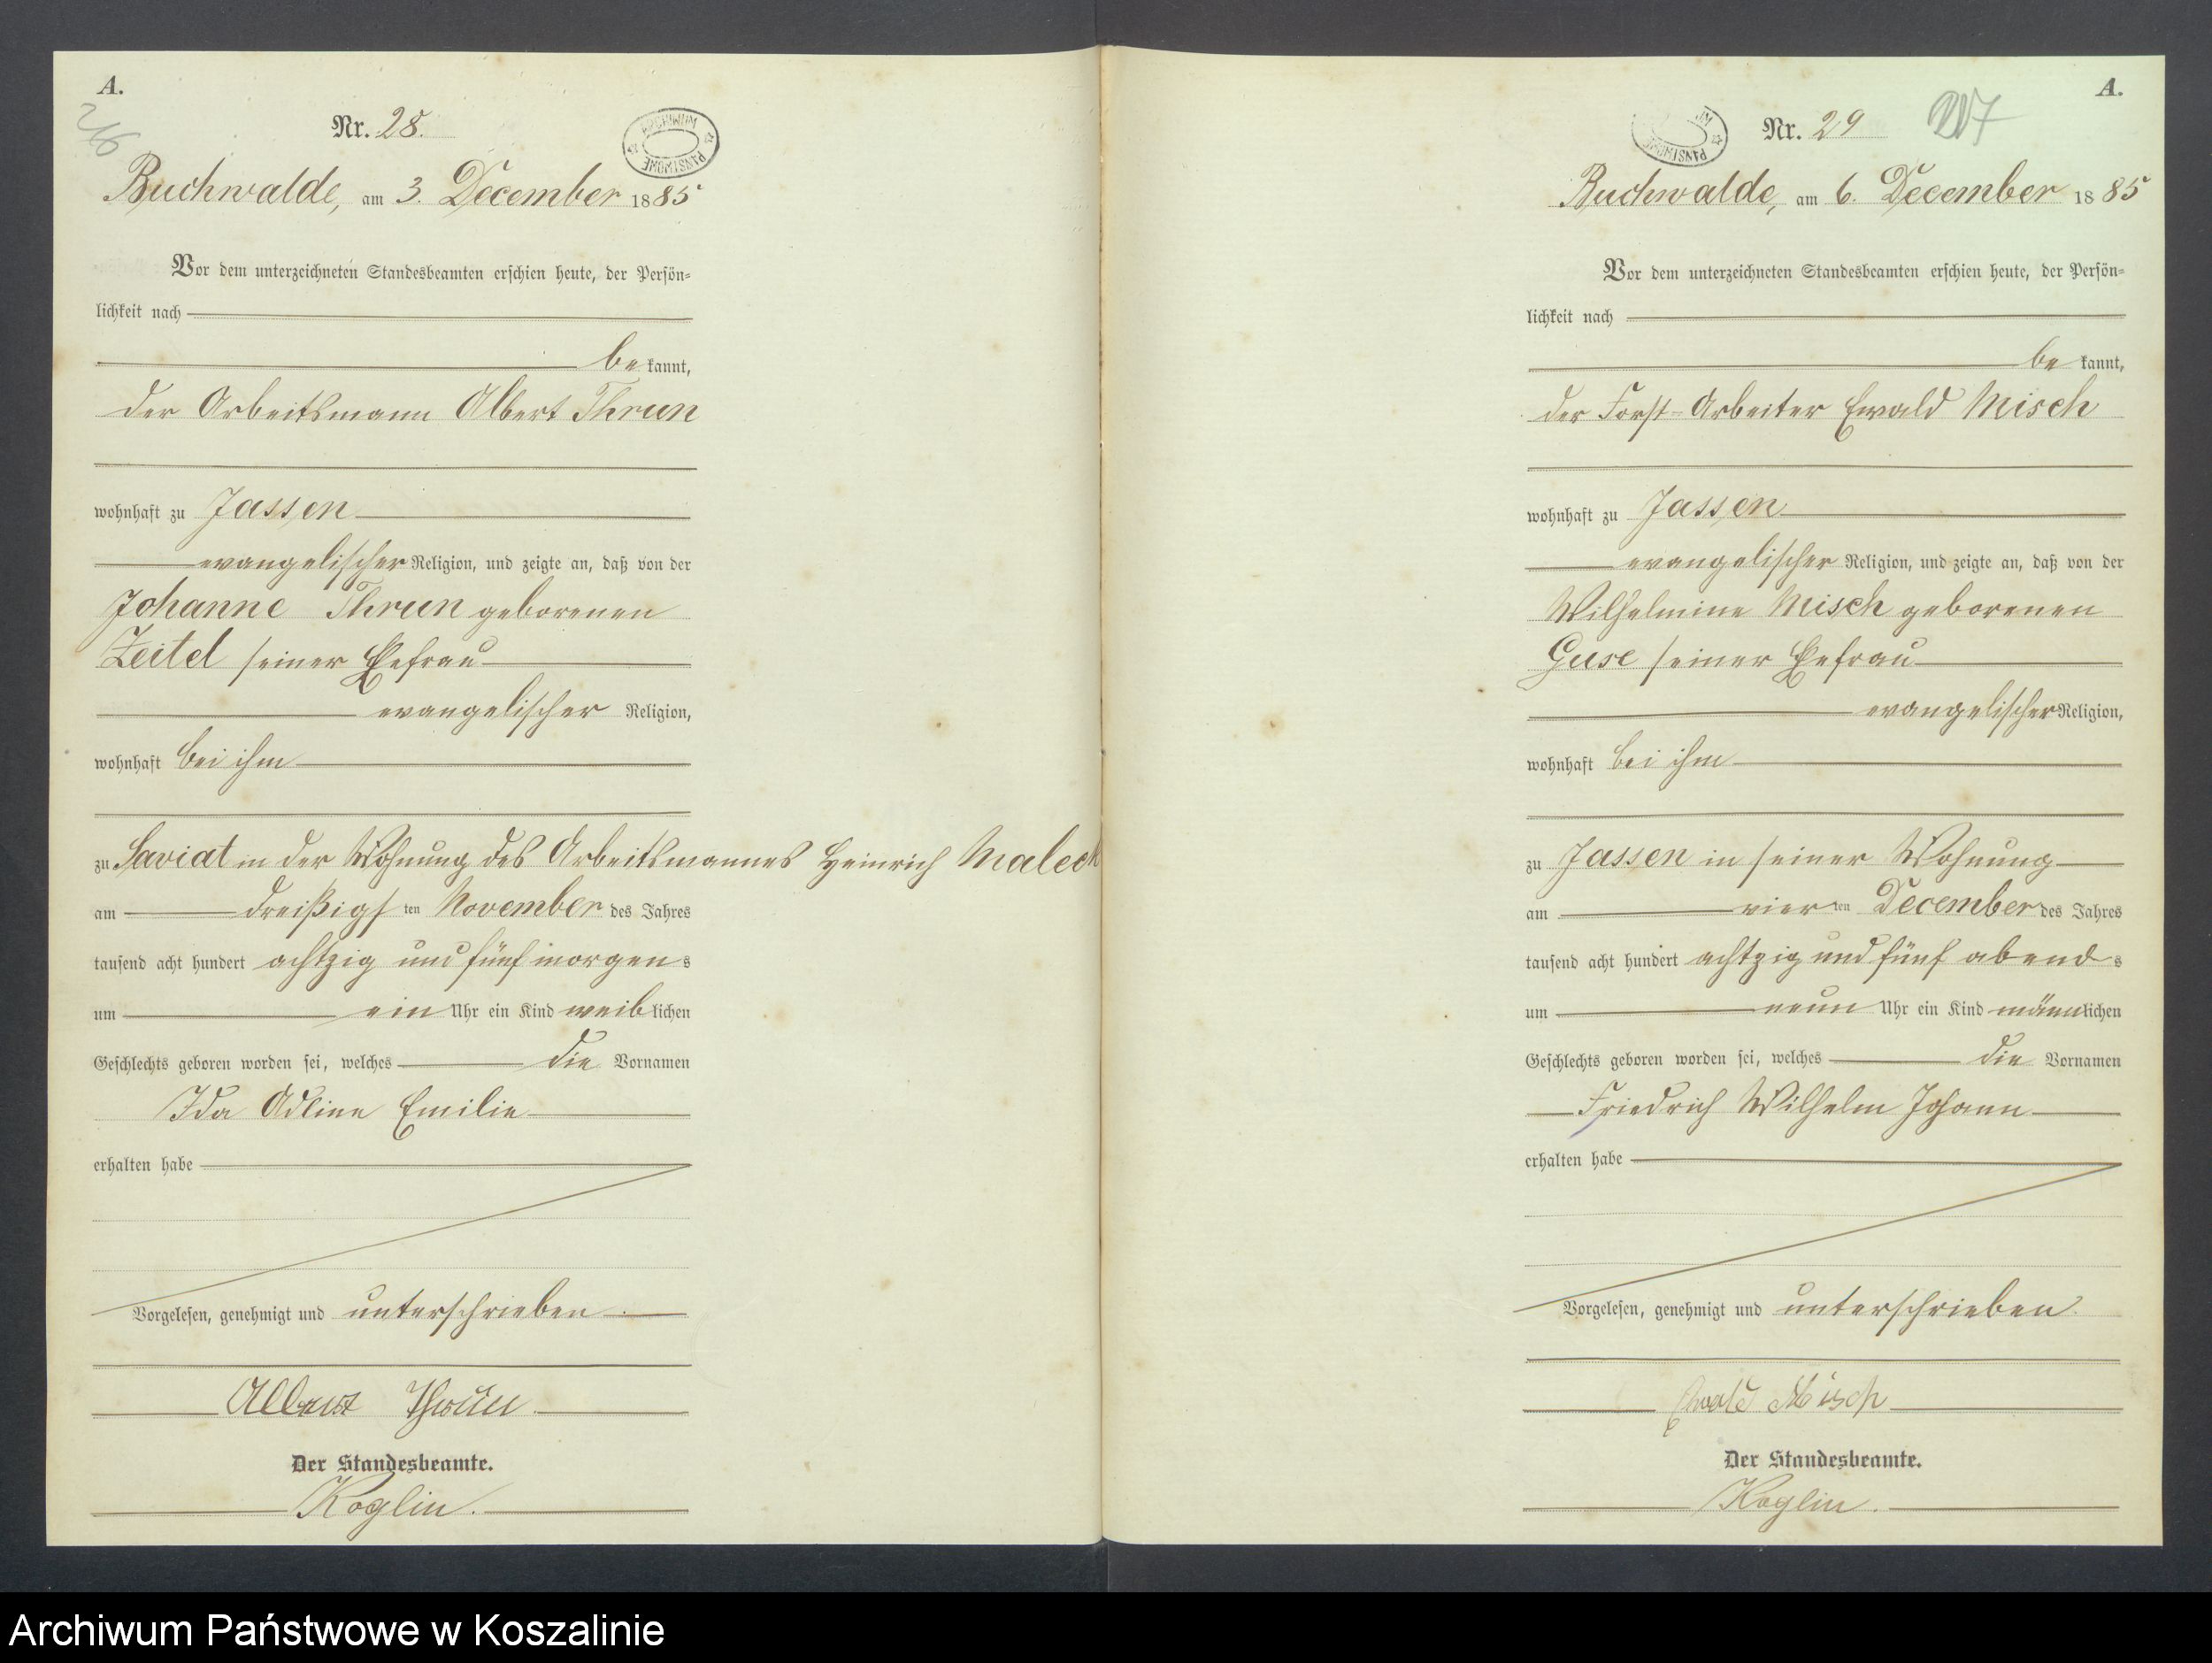 A.
216
Nr. 28.
ARCHIWUM PAŃSTWOWE
Buchwalde, am 3. December 1885
Vor dem unterzeichneten Standesbeamten erschien heute, der Persön-
lichkeit nach
be kannt,
der Arbeitsmann Albert Thrun
wohnhaft zu Jassen
evangelischer Religion, und zeigte an, daß von der
Johanne Thrun geborenen
Zeitel seiner Ehefrau
evangelischer Religion,
wohnhaft bei ihm
zu Saviat in der Wohnung des Arbeitsmannes Heinrich Maleck
am dreißigsten November des Jahres
tausend acht hundert achtzig und fünf morgens
um ein Uhr ein Kind weiblichen
Geschlechts geboren worden sei, welches die Vornamen
Ida Adline Emilie
erhalten habe
Vorgelesen, genehmigt und unterschrieben.
Albert Thrun.
Der Standesbeamte.
Koglin.
A.
Nr. 29
217
PAŃSTWOWE
Buchwalde, am 6. December 1885
Vor dem unterzeichneten Standesbeamten erschien heute, der Persön-
lichkeit nach
be kannt,
der Forst-Arbeiter Ewald Misch
wohnhaft zu Jassen
evangelischer Religion, und zeigte an, daß von der
Wilhelmine Misch geborenen
Guse seiner Ehefrau
evangelischer Religion,
wohnhaft bei ihm
zu Jassen in seiner Wohnung
am vierten December des Jahres
tausend acht hundert achtzig und fünf abends
um neun Uhr ein Kind männlichen
Geschlechts geboren worden sei, welches die Vornamen
Friedrich Wilhelm Johann
erhalten habe
Vorgelesen, genehmigt und unterschrieben.
Ewald Misch
Der Standesbeamte.
Koglin.
Archiwum Państwowe w Koszalinie